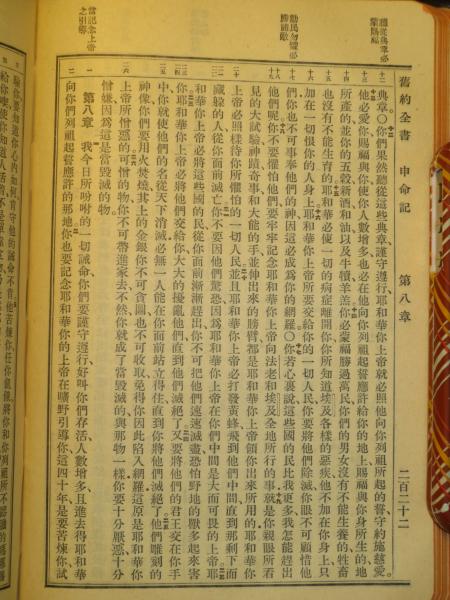 舊約全書 申命記 第八章 二百二十二
典章〇你們果然聽從這些典章謹守遵行耶和華你上帝就必照他向你列祖所起的誓守約施慈愛
他必愛你賜福與你使你人數增多也必在他向你列祖起誓應許給你的地上賜福與你身所生的地
所產的並你的五穀新酒和油以及牛犢羊羔你必蒙福勝過萬民你們的男女沒有不能生養的牲畜
也沒有不能生育的耶和華必使一切的病症離開你你所知道埃及各樣的惡疾他不加在你身上只
加在一切恨你的人身上耶和華你上帝所要交給你的一切人民你要將他們除滅你眼不可顧惜他
們你也不可事奉他們的神因這必成為你的網羅〇你若心裏說這些國的民比我更多我怎能趕出
他們呢你不要懼怕他們要牢牢記念耶和華你上帝向法老和埃及全地所行的事就是你親眼所看
見的大試驗神蹟奇事和大能的手並伸出來的膀臂都是耶和華你上帝領你出來所用的耶和華你
上帝必照樣待你所懼怕的一切人民並且耶和華你上帝必打發黃蜂飛到他們中間直到那剩下而
藏躲的人從你面前滅亡你不要因他們驚恐因為耶和華你上帝在你們中間是大而可畏的上帝耶
和華你上帝必將這些國的民從你面前漸漸趕出你不可把他們速速滅盡恐怕野地的獸多起來害
你耶和華你上帝必將他們交給你大大的擾亂他們直到他們滅絕了又要將他們的君王交在你手
中你就使他們的名從天下消滅必無一人能在你面前站立得住直到你將他們滅絕了他們雕刻的
神像你們要用火焚燒其上的金銀你不可貪圖也不可收取免得你因此陷入網羅這原是耶和華你
上帝所憎惡的可憎的物你不可帶進家去不然你就成了當毀滅的與那物一樣你要十分厭惡十分
憎嫌因為這是當毀滅的物
第八章 我今日所吩咐的一切誡命你們要謹守遵行好叫你們存活人數增多且進去得耶和華
向你們列祖起誓應許的那地你也要記念耶和華你的上帝在曠野引導你這四十年是要苦煉你試
遵從典章必
蒙賜福
勸民勿懼必
勝諸敵
當記念上帝
之引導